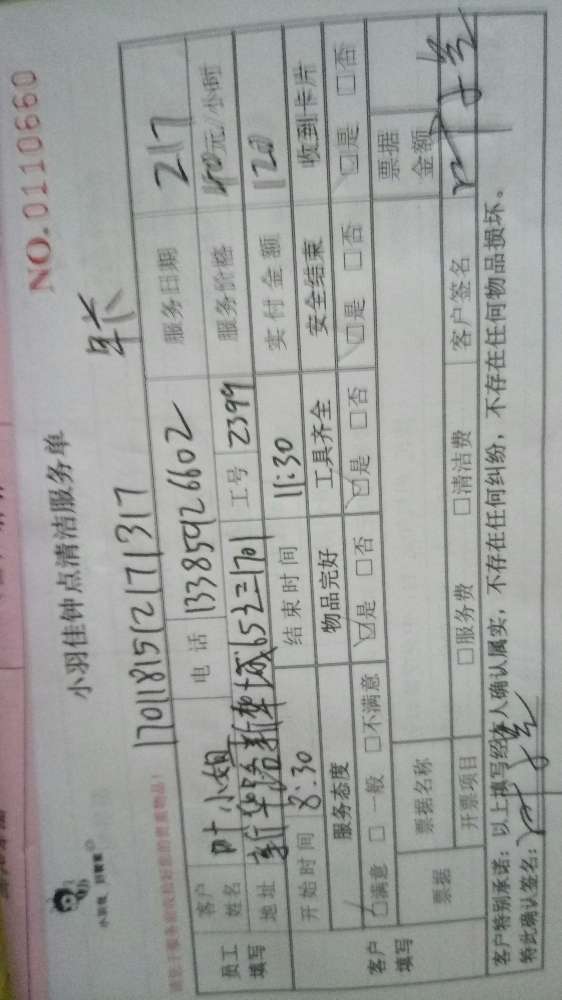 小羽佳 好管家
小羽佳钟点清洁服务单
NO.0110660
170118152171317
年长
请您于服务前收拾好您的贵重物品!
员工填写
客户姓名 叶小姐 电话 13385926602 服务日期 217
地址 新华路新华城65之三1701 工号 2399 服务价格 40元/小时
开始时间 8:30 结束时间 11:30 实付金额 120
客户填写
服务态度 物品完好 工具齐全 安全结束 收到卡片
☑满意 □一般 □不满意 ☑是 □否 ☑是 □否 ☑是 □否 ☑是 □否
票据 票据名称 票据金额
开票项目 □服务费 □清洁费 客户签名
客户特别承诺:以上填写经本人确认属实,不存在任何纠纷,不存在任何物品损坏。
特此确认签名: